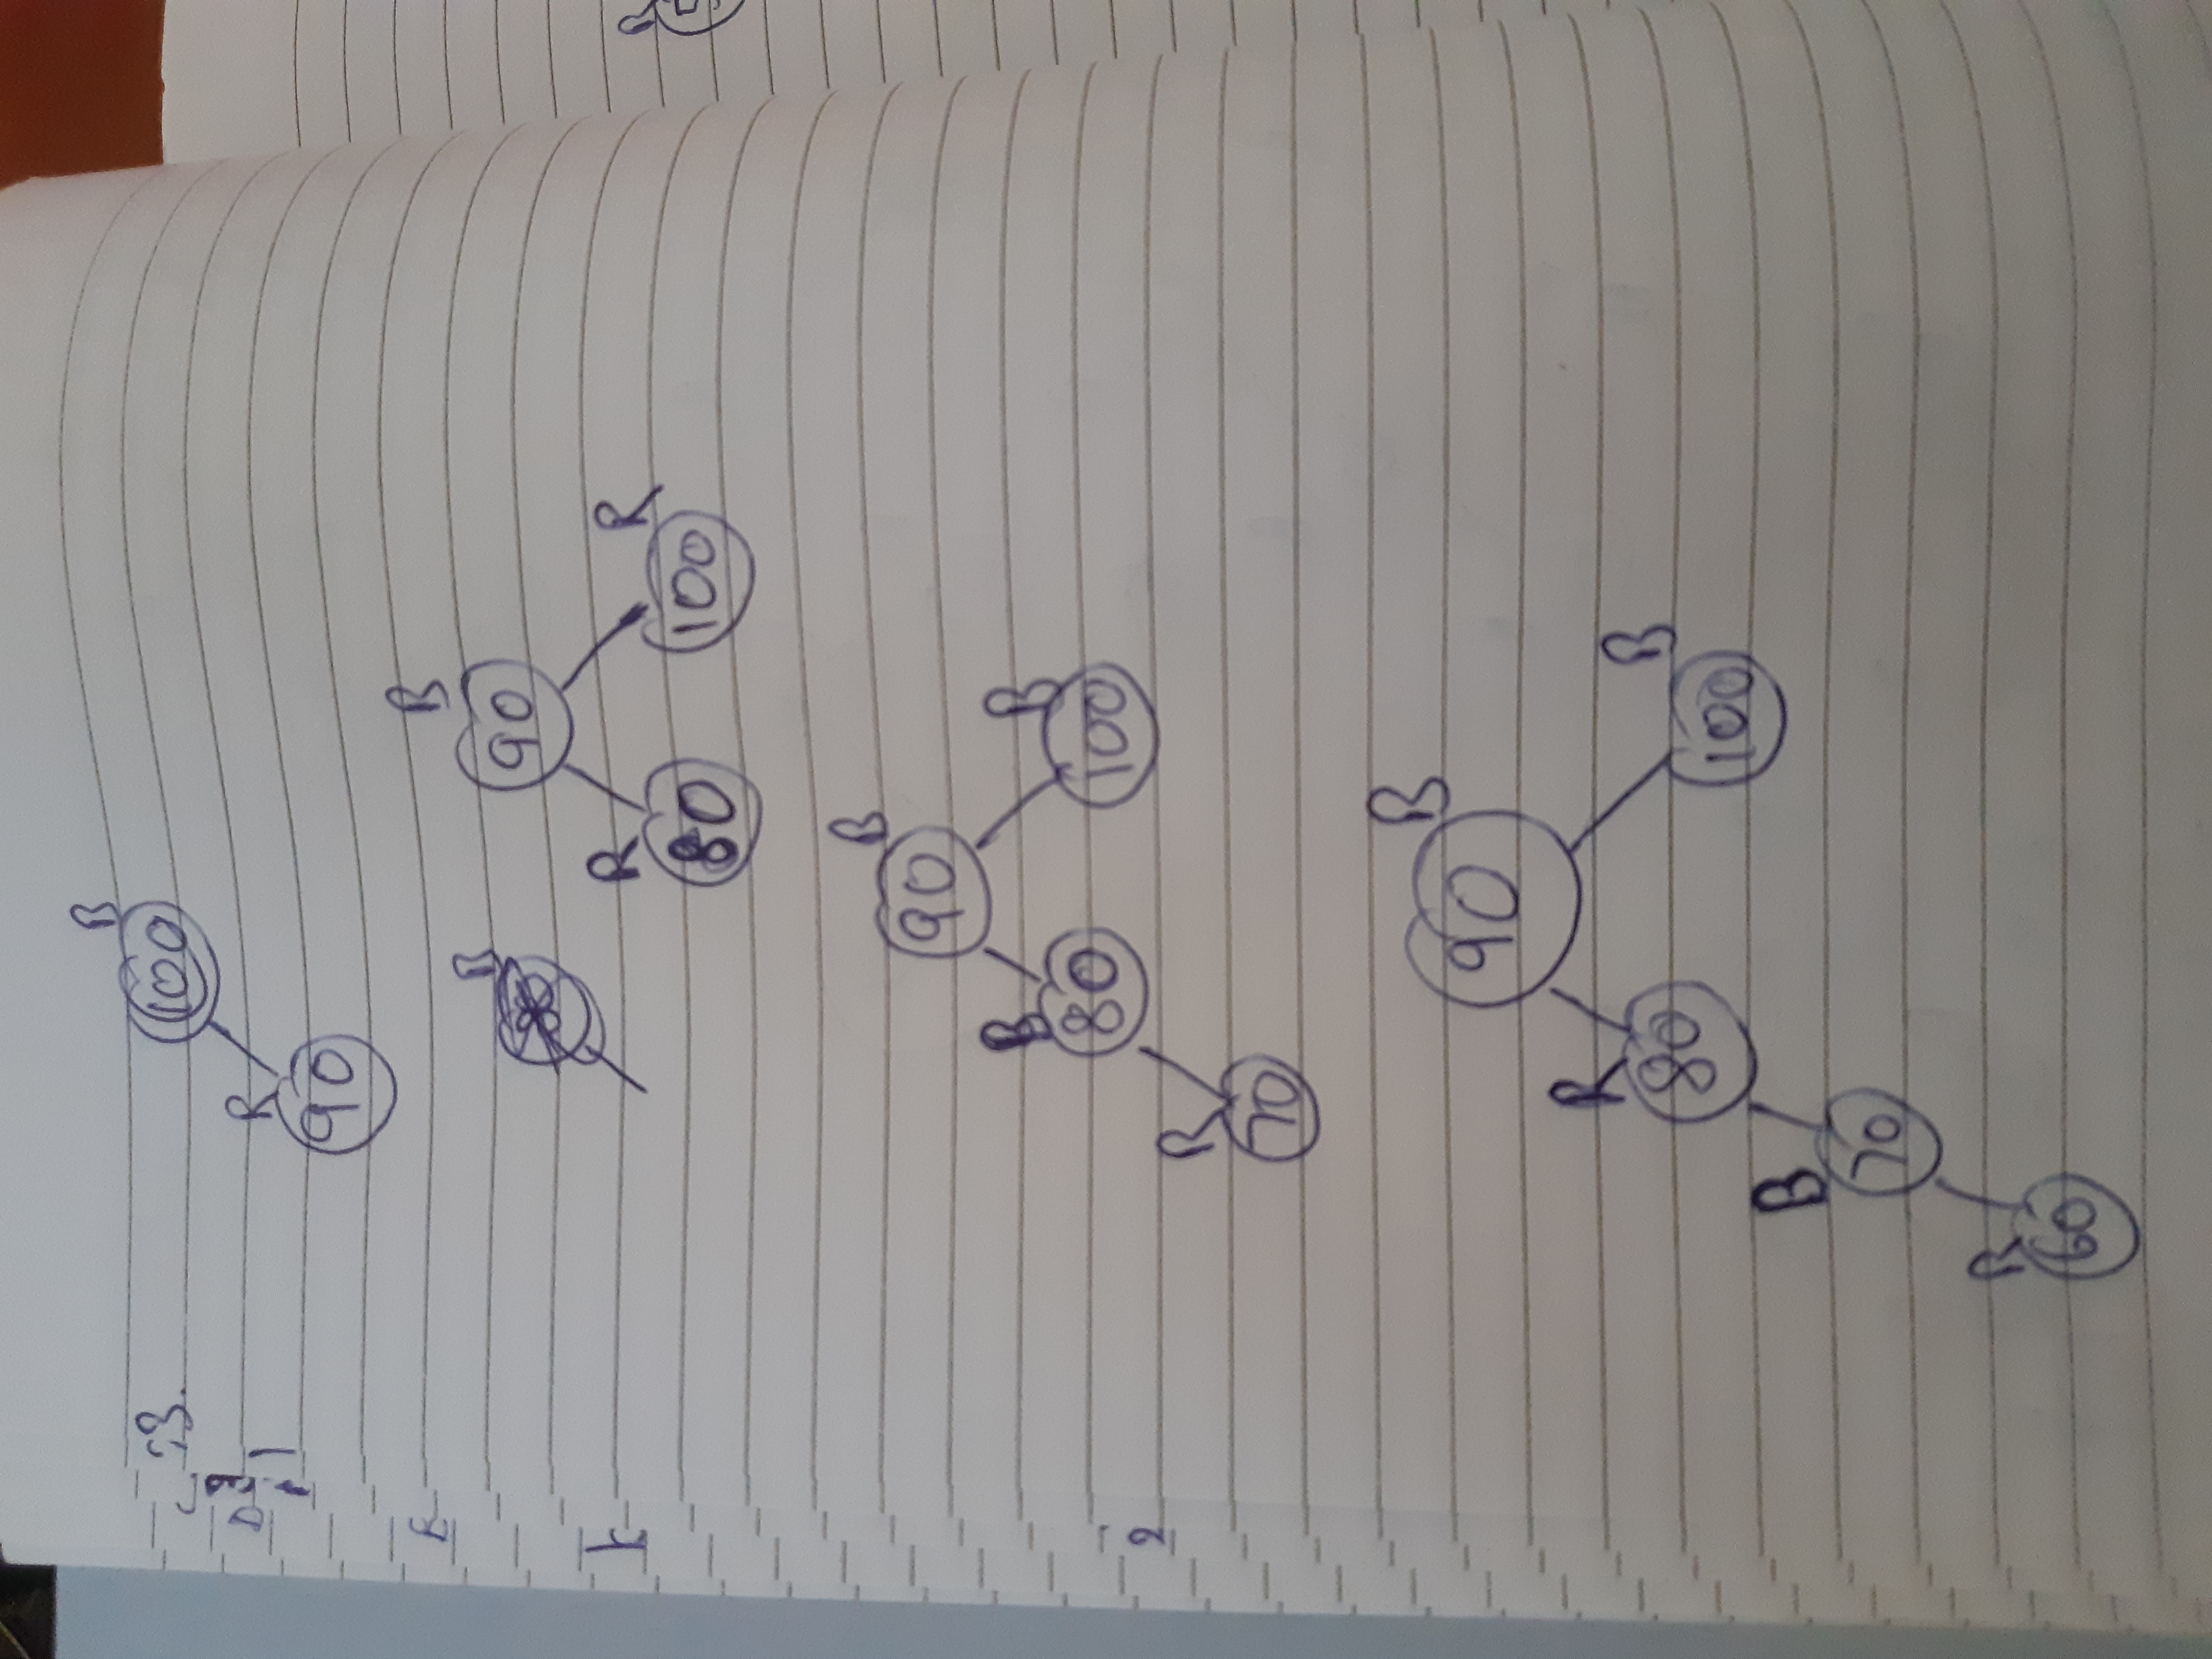 B
100
R
90
B
B
90
R
R
80
100
B
90
B
B
80
100
R
70
B
90
R
B
80
100
B
70
R
60
2
R